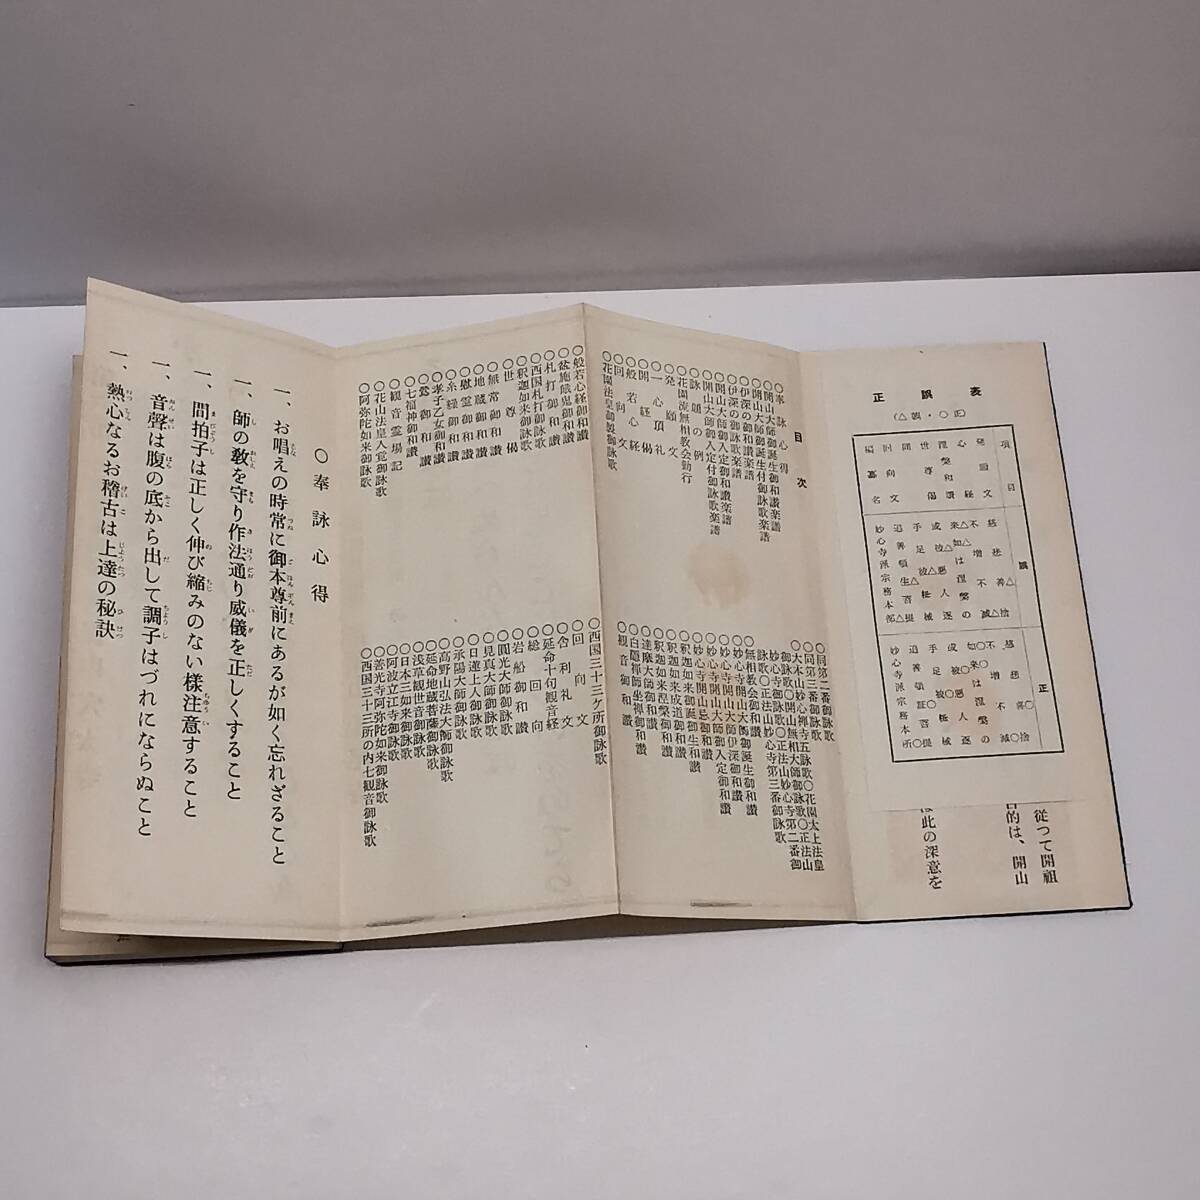 正誤表
(正○・誤△)
項目
誤
正
発願文
心経
世尊偈
回向文
編纂名
慈悲不善△捨
不増不減
来△如△は涅槃の
成被△悪人逐
手足被△杻械
追善頓生△菩提
妙心寺派宗務本部△
慈悲喜○捨
不増不減
如○来○は涅槃の
成被○悪人逐
手足被○杻械
追善頓証○菩提
妙心寺派宗務本所○
従つて開祖
目的は、開山
は此の深意を
目次
○奉詠心得
○開山大師御誕生御和讃楽譜
○開山大師御誕生付御詠歌楽譜
○伊深の御和讃楽譜
○伊深の御詠歌楽譜
○開山大師御入定御和讃楽譜
○開山大師御入定付御詠歌楽譜
○詠題の例
○花園流無相教会勤行
○発願文
○一心頂礼
○開経偈
○般若心経
○回向文
○花園法皇御製御詠歌
○同第二番御詠歌
○同第三番御詠歌
○大本山妙心禅寺五詠歌○花園太上法皇
御詠歌○開山無相大師御詠歌○正法山
妙心寺御詠歌○正法山妙心寺第二番御
詠歌○正法山妙心寺第三番御詠歌
○無相教会御和讃
○妙心寺開山大師御誕生御和讃
○妙心寺開山大師伊深御和讃
○妙心寺開山大師御入定御和讃
○妙心寺開山忌御和讃
○釈迦如来御誕生御和讃
○釈迦如来成道御和讃
○釈迦如来涅槃御和讃
○達摩大師御和讃
○白隠禅師坐禅御和讃
○観音御和讃
○般若心経御和讃
○盆施餓鬼御和讃
○札打御和讃
○西国札打御詠歌
○釈迦如来御詠歌
○世尊偈
○無常御和讃
○地蔵御和讃
○慰霊御和讃
○糸繰御和讃
○孝子乙女御和讃
○鶯御和讃
○七福神御和讃
○観音霊場記
○花山法皇人覚御詠歌
○阿弥陀如来御詠歌
○西国三十三ケ所御詠歌
○回向文
○舎利礼文
○延命十句観音経
○総回向
○岩船御和讃
○圓光大師御詠歌
○見真大師御詠歌
○日蓮上人御詠歌
○承陽大師御詠歌
○高野山弘法大師御詠歌
○延命地蔵菩薩御詠歌
○浅草観世音御詠歌
○日本三如来御詠歌
○阿波立江寺御詠歌
○善光寺阿弥陀如来御詠歌
○西国三十三所の内七観音御詠歌
○奉詠心得
一、お唱えの時常に御本尊前にあるが如く忘れざること
一、師の教を守り作法通り威儀を正しくすること
一、間拍子は正しく伸び縮みのない様注意すること
一、音聲は腹の底から出して調子はづれにならぬこと
一、熱心なるお稽古は上達の秘訣